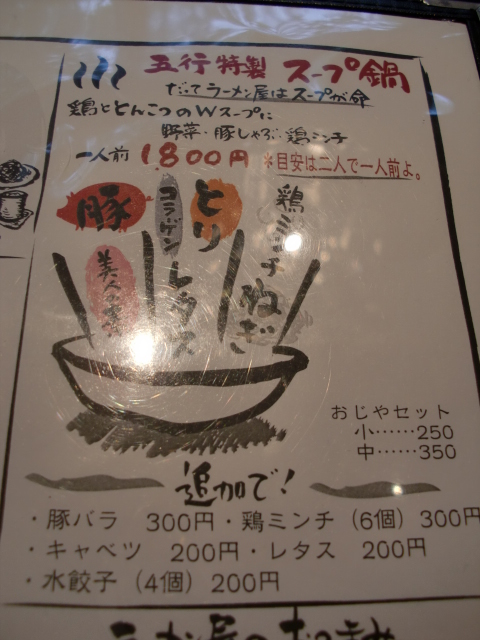 五行特製 スープ鍋
だってラーメン屋はスープが命
鶏ととんこつのWスープに
野菜・豚しゃぶ・鶏ミンチ
一人前 1,800円 *目安は二人で一人前よ。
豚
コラーゲン
とり
鶏ミンチ
美人の素
レタス
ねぎ
おじやセット
小……250
中……350
追加で!
・豚バラ 300円・鶏ミンチ(6個) 300円
・キャベツ 200円・レタス 200円
・水餃子(4個) 200円